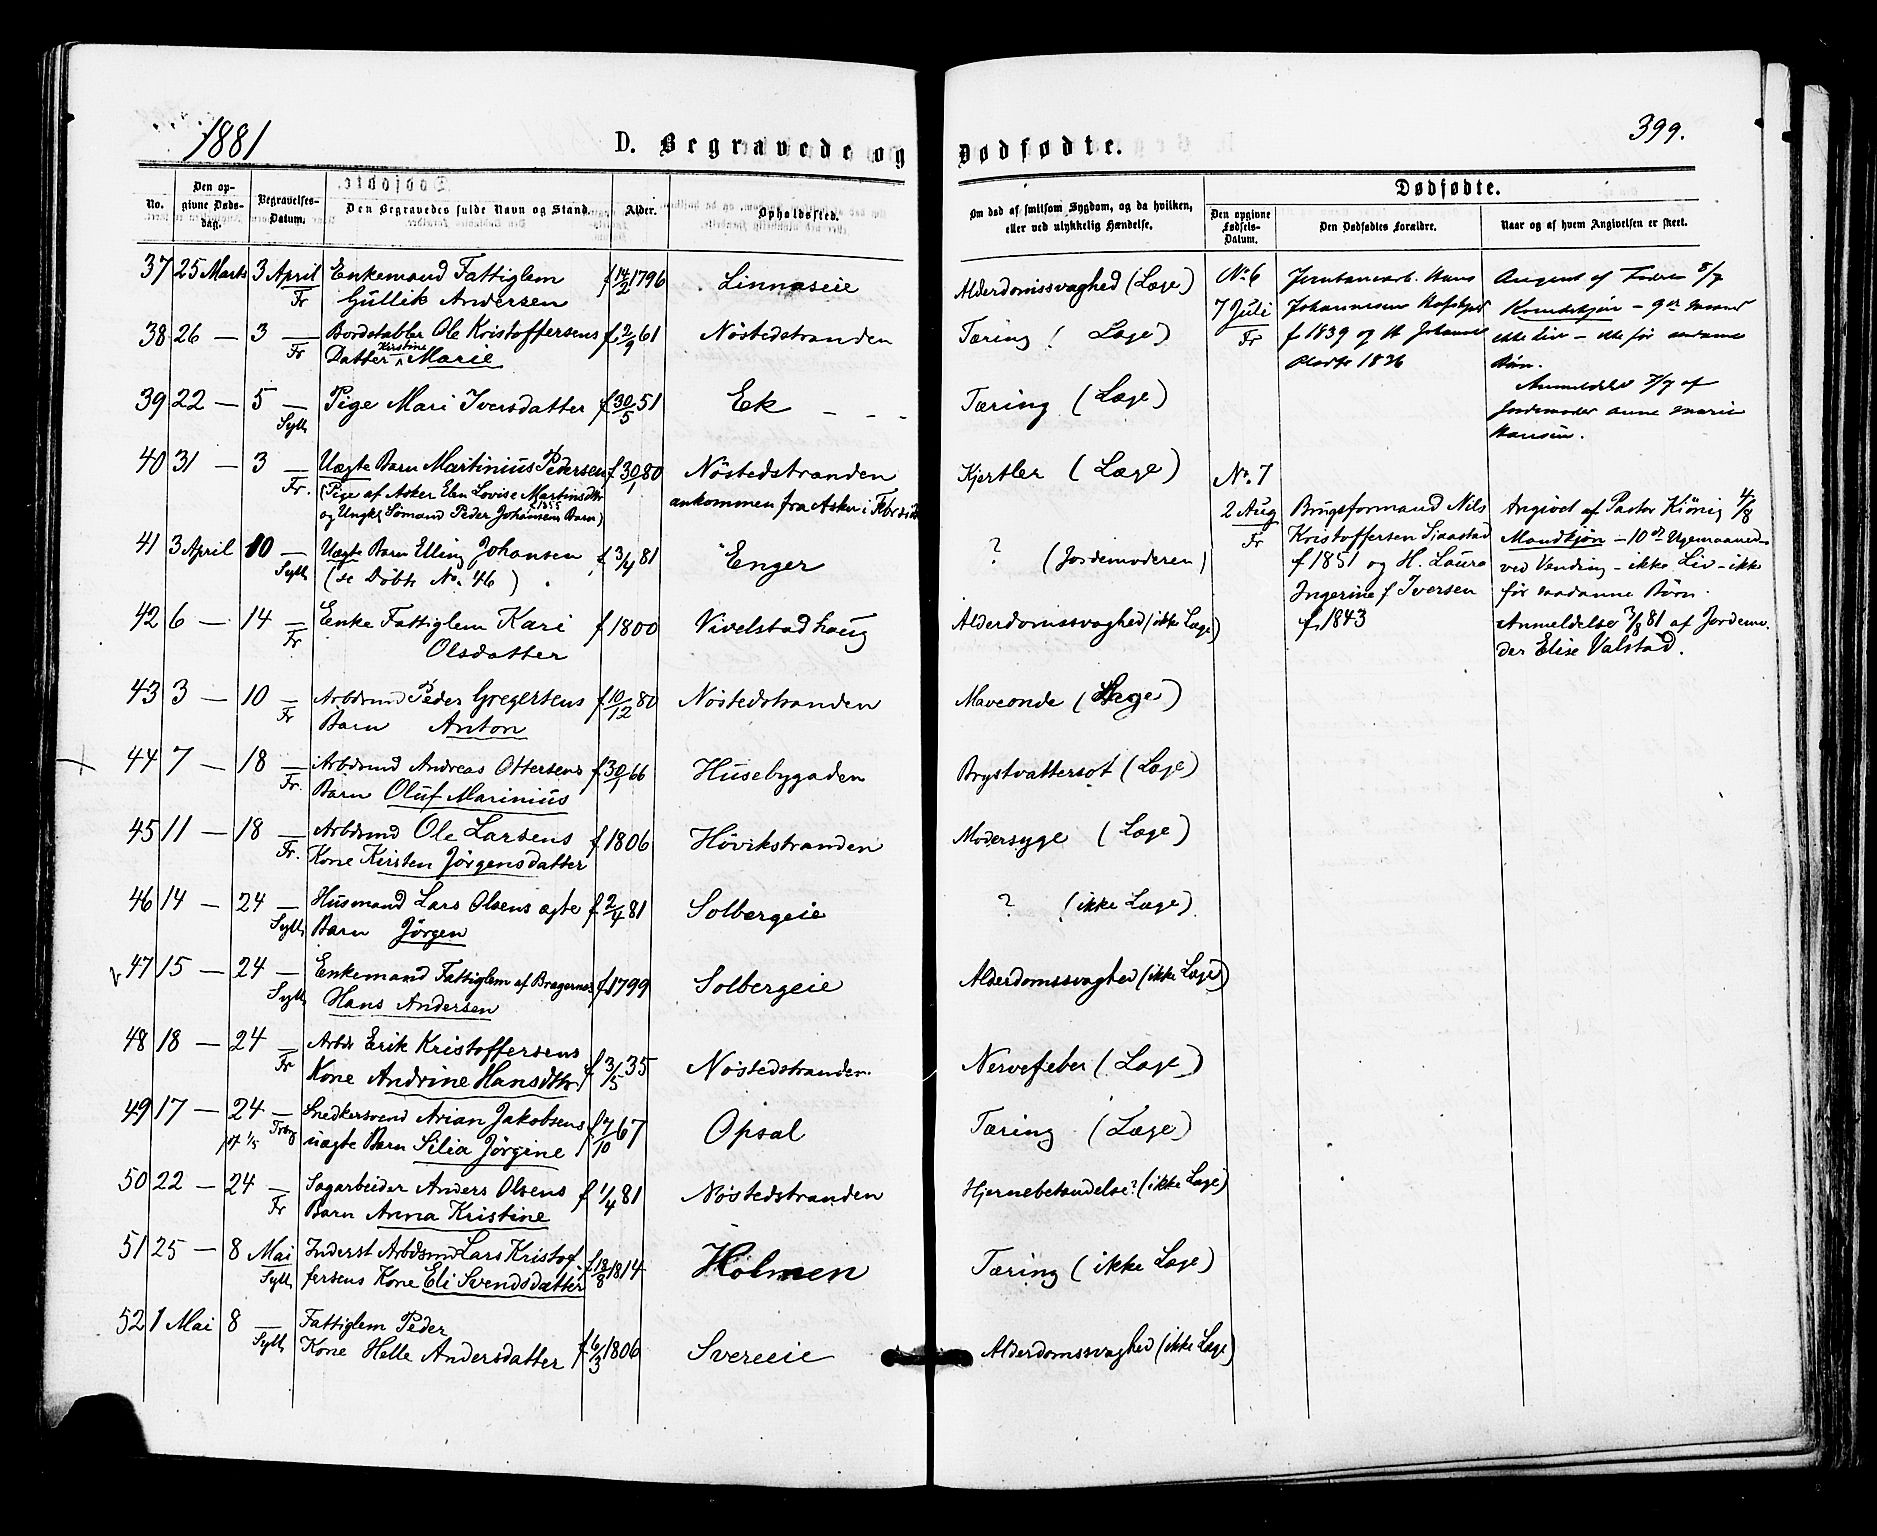 1881
D. Begravede og Dødfødte.
399.
No.
Den opgivne Dødsdag.
Begravelses-Datum.
Den Begravedes fulde Navn og Stand.
Alder.
Opholdssted.
Om død af smitsom Sygdom, og da hvilken, eller ved ulykkelig Hændelse.
Dødfødte.
Den opgivne Fødsels-Datum.
Den Dødfødtes Forældre.
Naar og af hvem Angivelsen er skeet.
37 25 Marts 3 April Enkemand Fattiglem f 14/2 1796 Linnaseie Alderdomssvaghed (Læge)
Fr Gullik Andersen
38 26 — 3 — Bordstabler Ole Kristoffersens f. 2/9 61 Nöstedstranden Tæring (Læge)
Fr Datter Kirstine Marie
39 22 — 5 — Pige Mari Iversdatter f 30/5 51 Ek — — — Tæring (Læge)
Syll
40 31 — 3 — Uægte Barn Martinius Pedersen f 30/1 80 Nöstedstranden Kjertler (Læge)
Fr. (Pige af Asker Elen Lovise Martinsdtr ankommen fra Asker i
1855
og Ungk. Sömand Peder Johansens Barn)
41 3 April 10 — Uægte Barn Elling Johansen f 3/4 81 Enger ? (Jordemoderen)
Syll (se Döbte No. 46)
42 6 — 14 — Enke Fattiglem Kari f 1800 Vivelstadhaug Alderdomssvaghed (ikke Læge)
Fr Olsdatter
43 3 — 10 — Arbdmd Peder Gregersens f. 10/12 80 Nöstedstranden Maveonde (Læge)
Fr Barn Anton
44 7 — 18 — Arbdmd Andreas Ottersens f. 30/1 66 Husebygaden Brystvattersot (Læge)
Fr. Barn Oluf Marinius
45 11 — 18 — Arbdmd Ole Larsens f 1806 Hövikstranden Modersyge (Læge)
Fr. Kone Kirsten Jørgensdatter
46 14 — 24 — Husmand Lars Olsens ægte f. 2/4 81 Solbergeie ? (ikke Læge)
Sylli Barn Jörgen
47 15 — 24 — Enkemand Fattiglem af Bragernæs f. 1799 Solbergeie Alderdomssvaghed (ikke Læge)
Sylli Hans Andersen
48 18 — 24 — Arbdr Erik Kristoffersens f. 3/5 35 Nöstedstranden Nervefeber (Læge)
Fr Kone Andrine Hansdtr
49 17 — 24 — Snedkersvend Arian Jakobsens f 7/10 67 Opsal Tæring (Læge)
1/5 uægte Barn Silia Jørgine
50 22 — 24 — Sagarbeider Anders Olsens f 1/4 81 Nöstedstranden Hjernebetændelse? (ikke Læge)
Fr Barn Anna Kristine
51 25 — 8 Mai Inderst Arbdsmd Lars Kristof- f. 18/8 1814 Holmen Tæring (ikke Læge)
Sylli fersens Kone Eli Svendsdatter
52 1 Mai 8 — Fattiglem Peder
Sylli Kone Helle Andersdatter f 6/3 1806 Svereeie Alderdomssvaghed (ikke Læge)
No 6
7 Juli
Fr
Jernbanearb. Hans
Johannesen
f 1839 og H. Johanne
1836
Angivet af Faderen 8/7
Kvindekjön — 9de Maaned
ikke Liv — ikke før saadanne
Børn.
Anmeldelse 7/7 af
Jordemoder Anne Marie
Hansen.
No. 7
2 Aug
Fr
Brugsformand Nils
Kristoffersen Sjaastad
f 1851 og H. Laura
Ingerine f Iversen
f. 1843
Angivet af Pastor Kiönig 4/8
Mandkjön — 10de Ugemaaned
ved Vending — ikke Liv — ikke
för saadanne Börn.
Anmeldelse 3/8 81 af Jordemo-
der Elise Valstad.